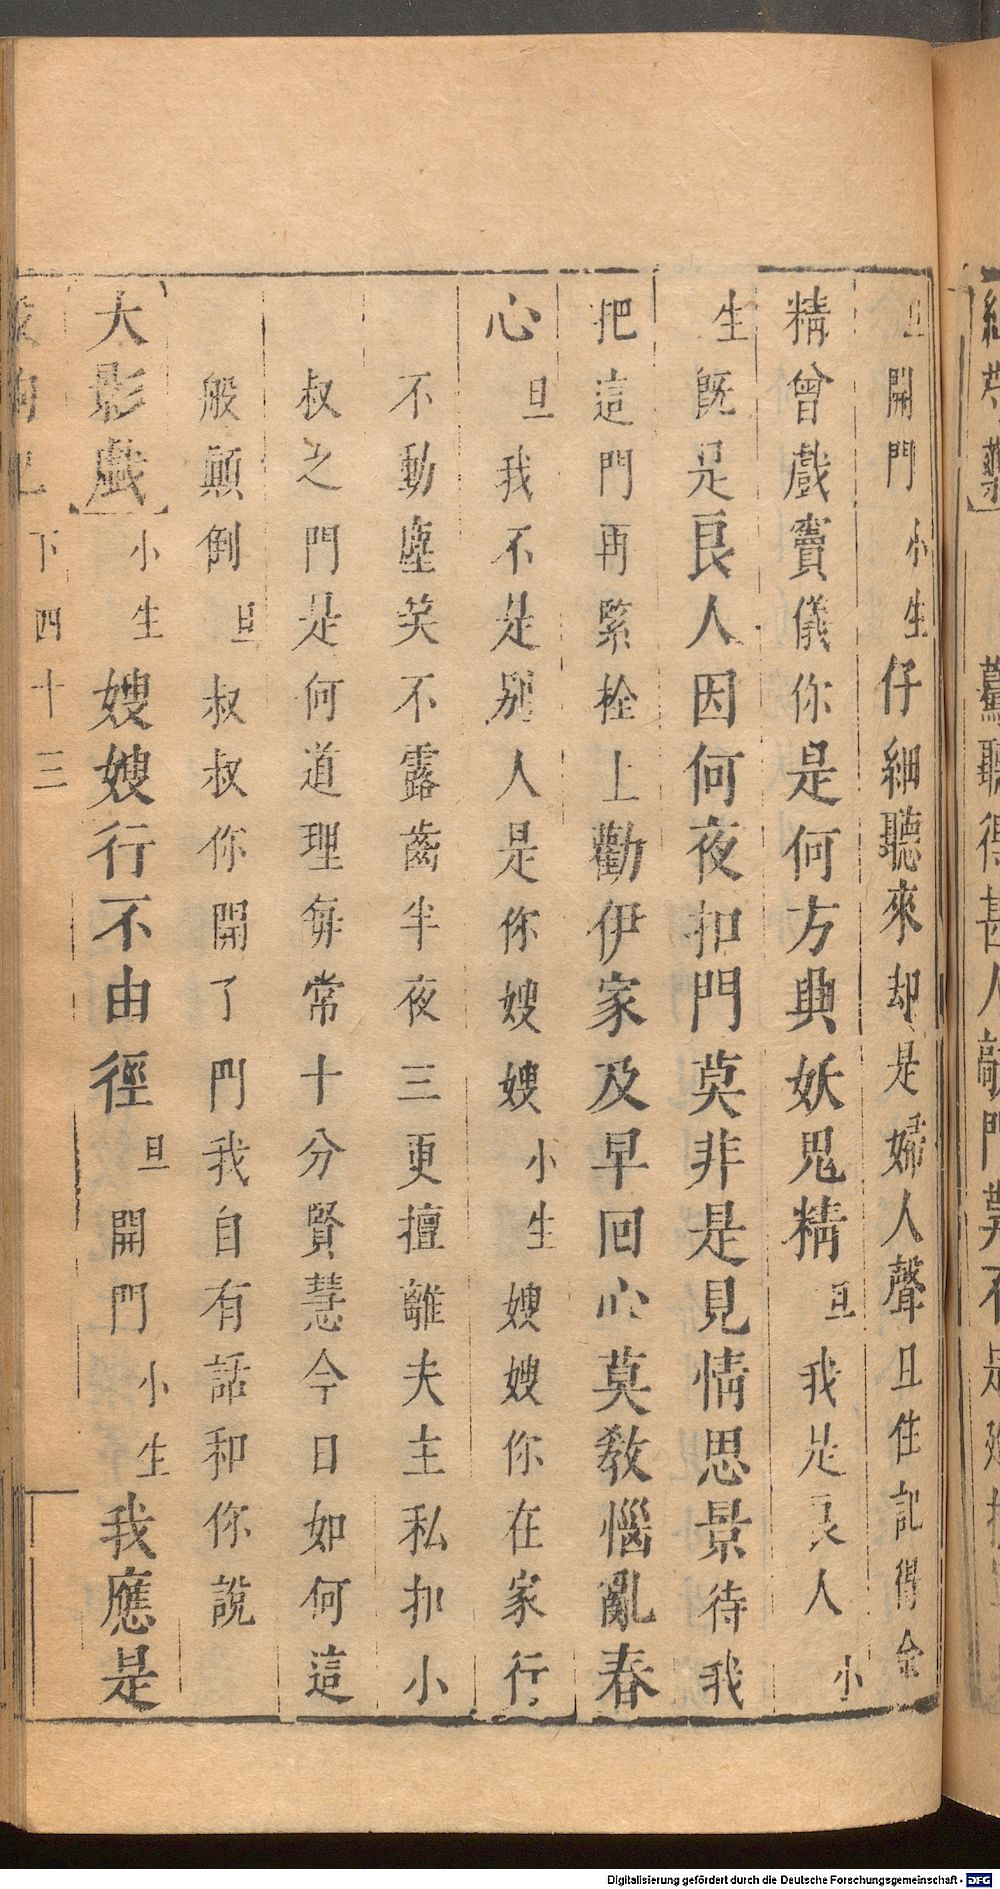 旦開門小生仔細聽來却是婦人聲且住記得金
精曾戲竇儀你是何方與妖鬼精旦我是良人小
生旣是良人因何夜扣門莫非是見情思景待我
把這門再緊栓上勸伊家及早回心莫教惱亂春
心旦我不是別人是你嫂嫂小生嫂嫂你在家行
不動塵笑不露齒半夜三更擅離夫主私扣小
叔之門是何道理每常十分賢慧今日如何這
般顛倒旦叔叔你開了門我自有話和你說
大影戲小生嫂嫂行不由徑旦開門小生我應是
下四十三
Digitalisierung gefördert durch die Deutsche Forschungsgemeinschaft - DFG